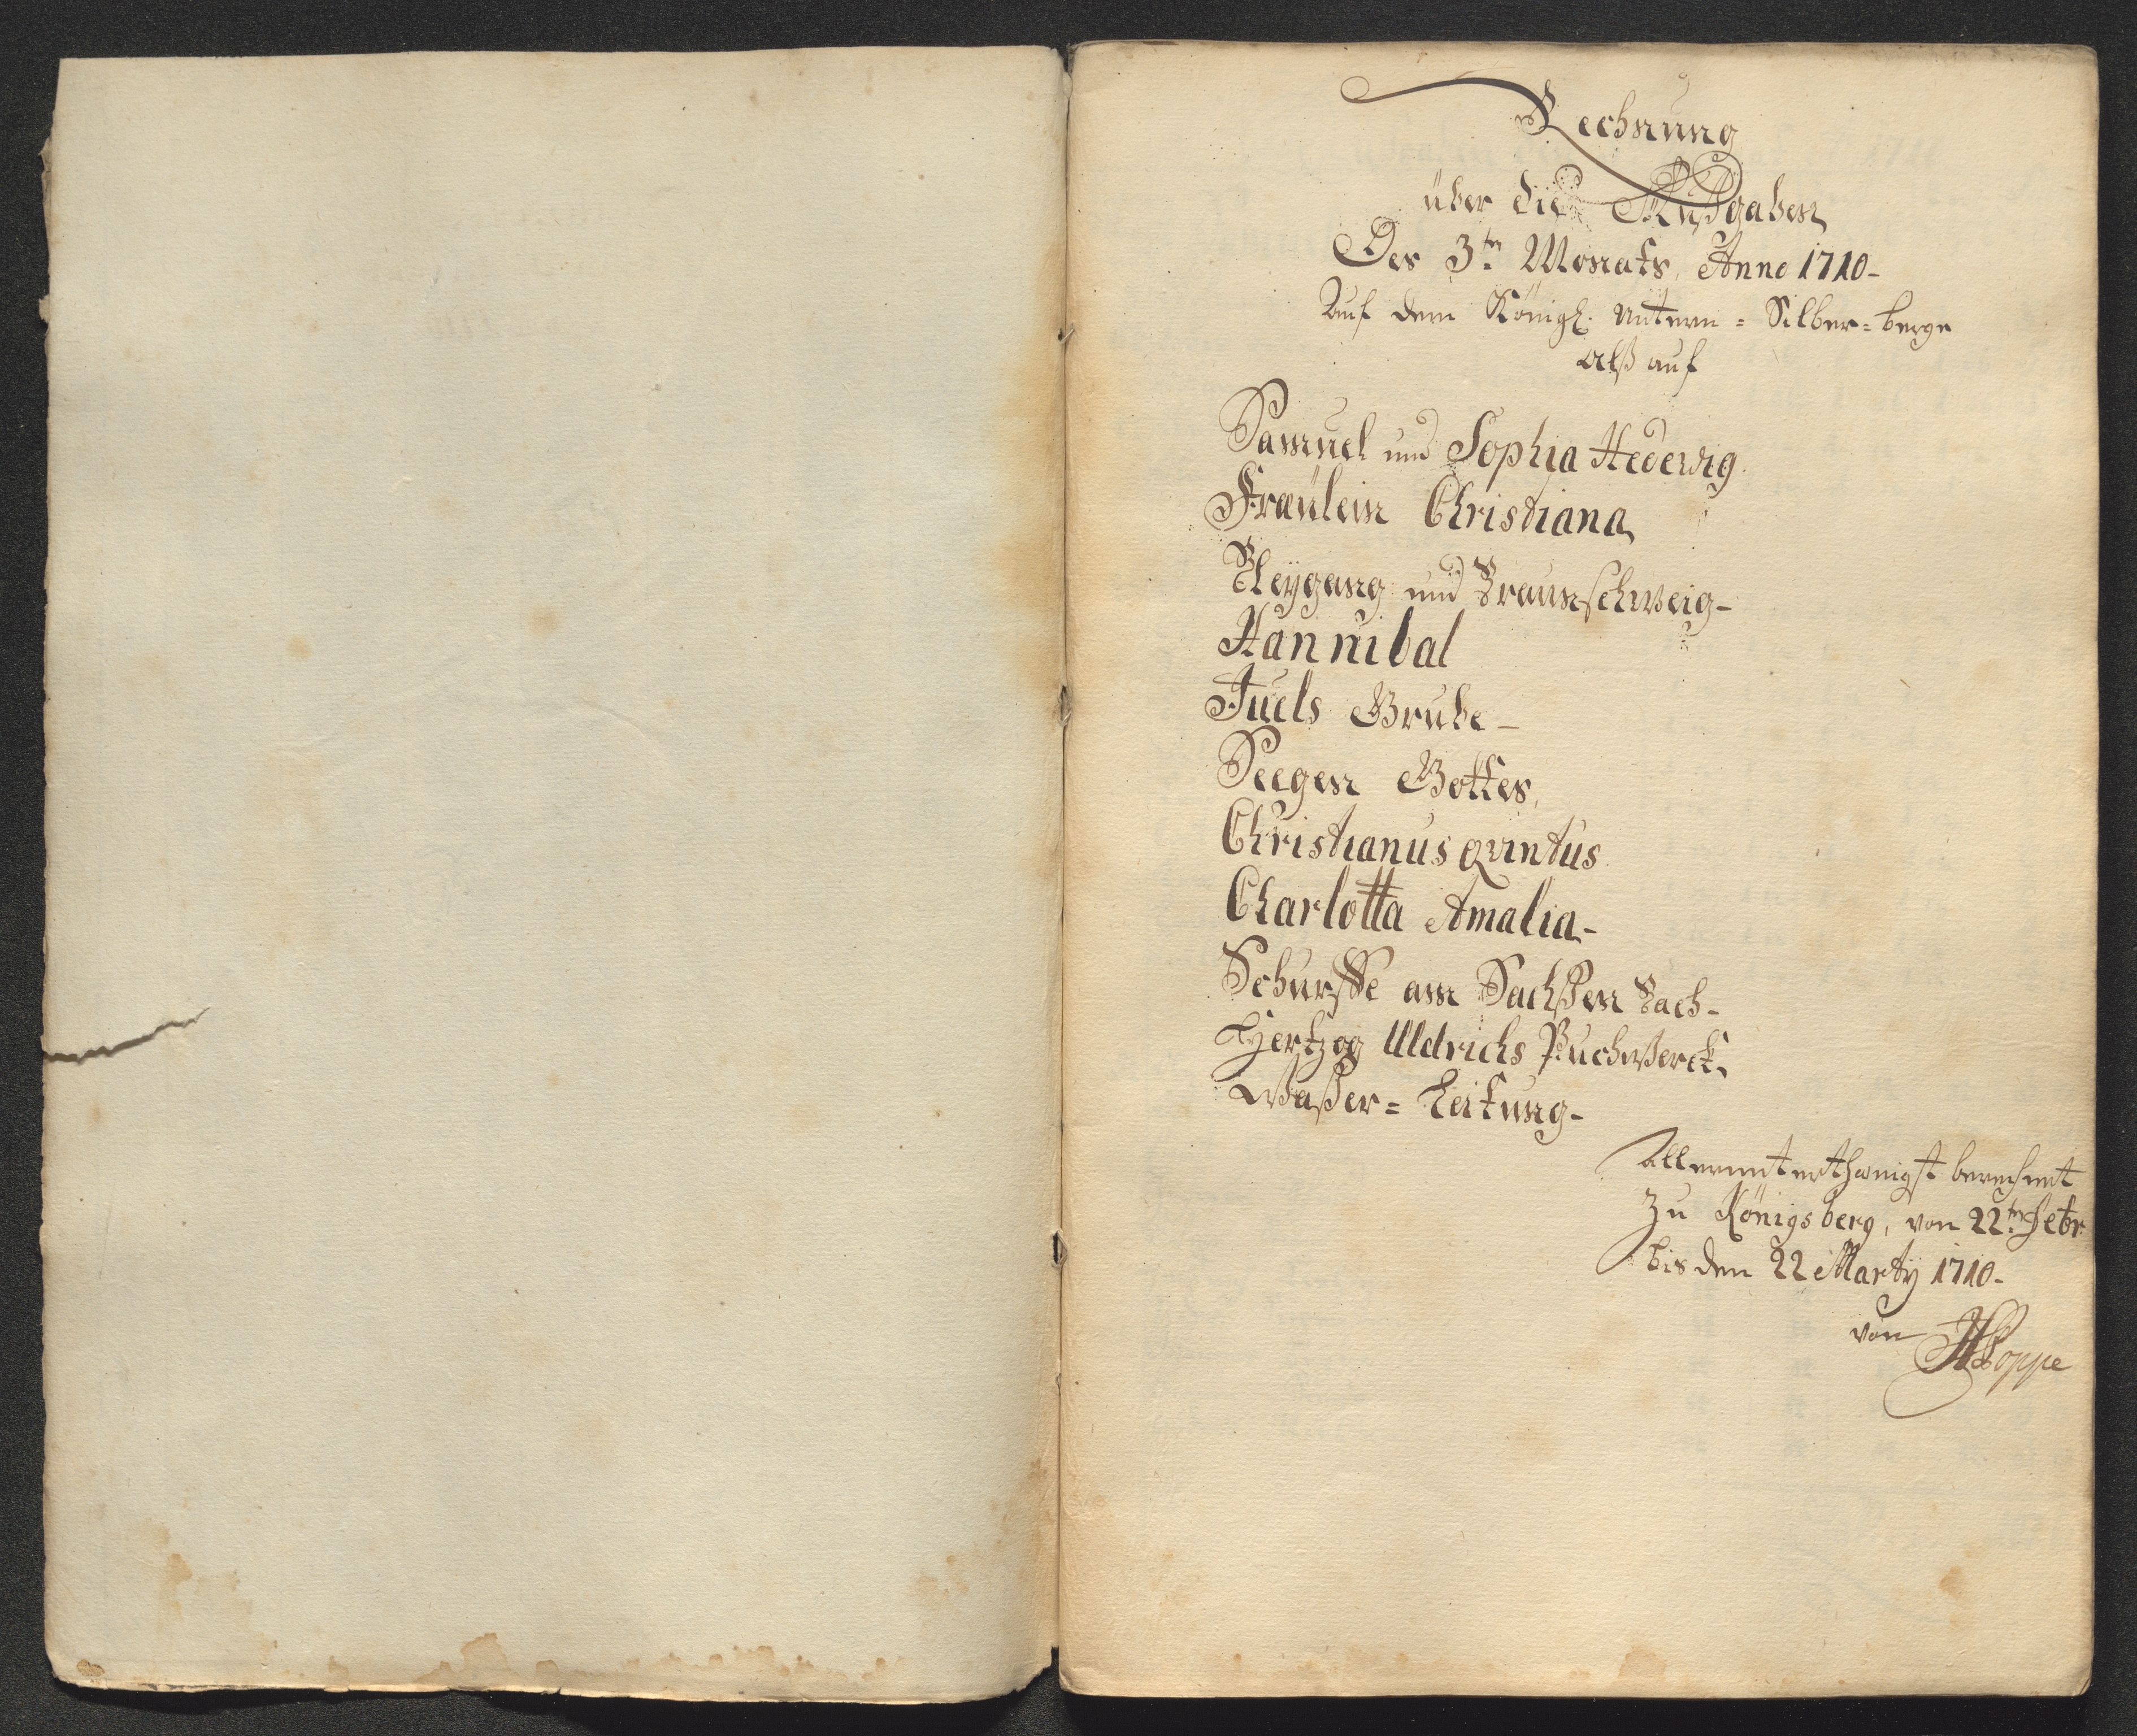 Rechnung
über die Außgaben
Des 3ten Monats, Anno 1710-
Auf dem Königl. Untern = Silber = berge
alß auf
Samuel und Sophia Hedewig.
Fraülein Christiana
Bleygang und Braunschweig-
Hannibal
Juels Grube-
Seegen Gottes,
Christianus Qvintus
Charlotta Amalia-
Schurffe am Sachßen Bach-
Hertzog Uldrichs Puchwerck
Waßer = Leitung-
Allerunterthänigst berechnet
Zu Königsberg, von 22ten Febr.
bis den 22 Marty 1710-
von HPoppe